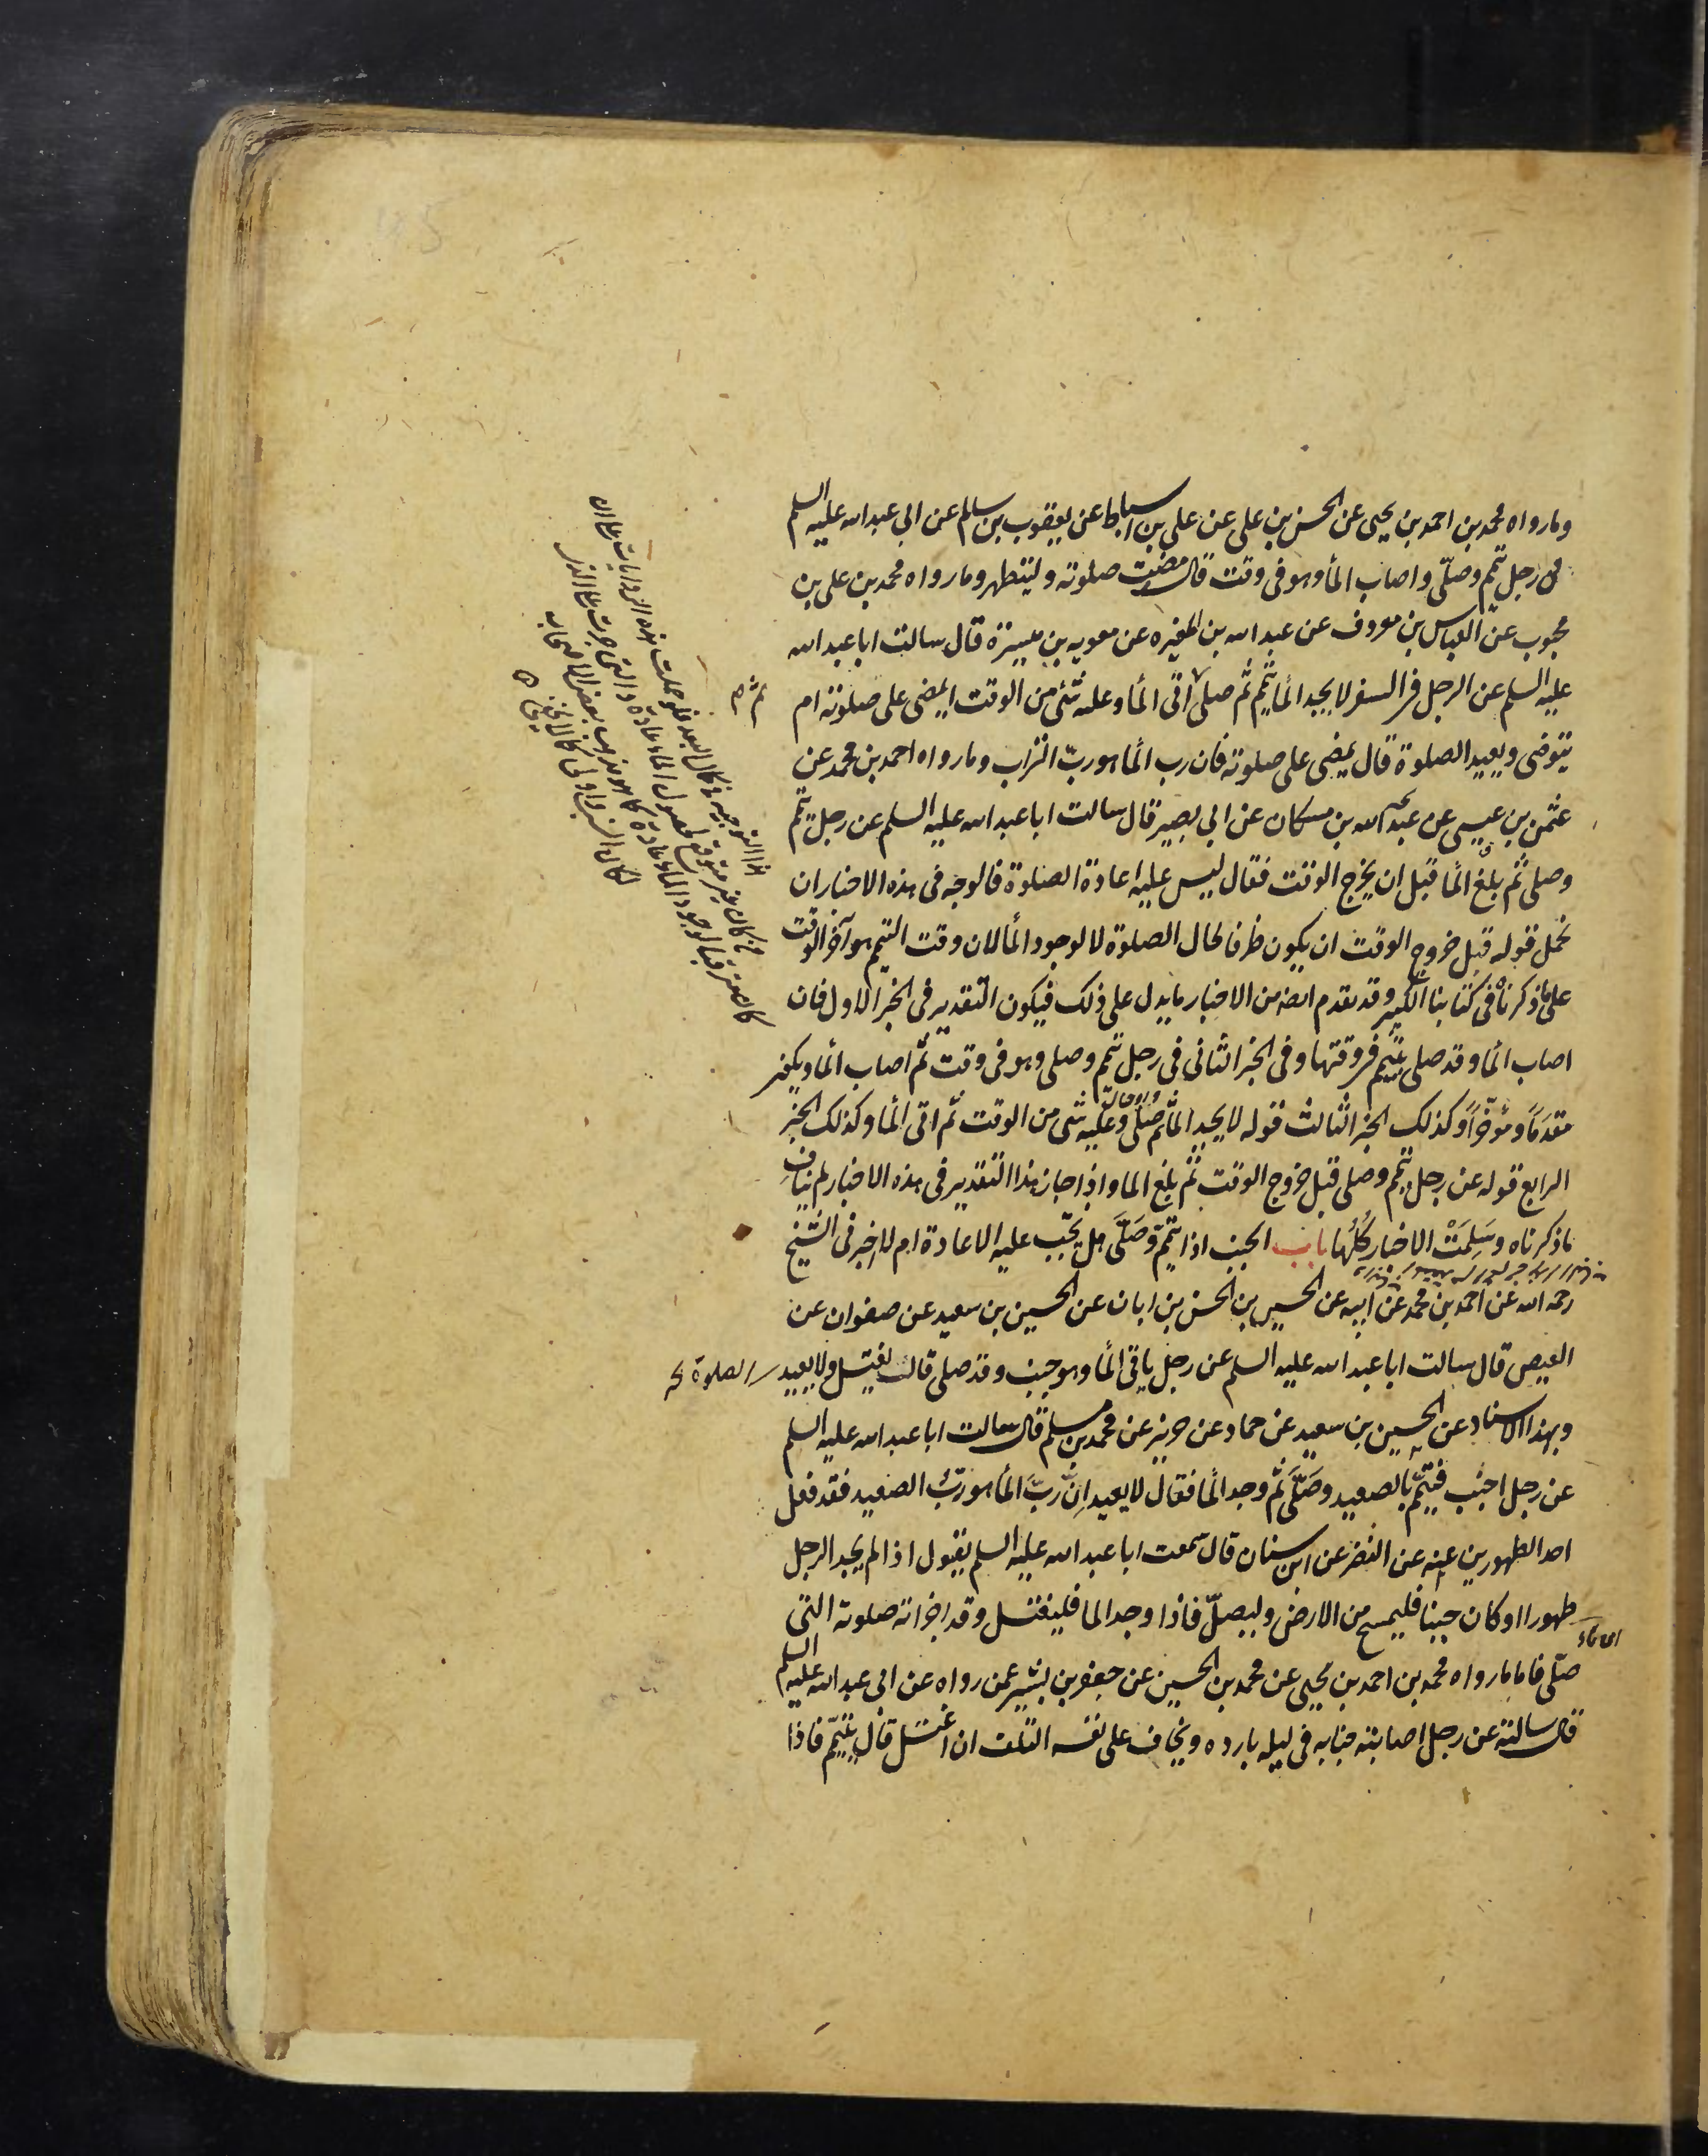 وما رواه محمد بن احمد بن يحيى عن الحسن بن على عن على بن اسباط عن يعقوب بن سالم عن ابى عبد الله عليه السلم
فى رجل تيمم وصلّى واصاب المأ وهو فى وقت قال مضت صلوته وليتطهر وما رواه محمد بن على بن
محبوب عن العباس بن معروف عن عبد الله بن المغيره عن معويه بن ميسرة قال سالت ابا عبد الله
عليه السلم عن الرجل فى السفر لا يجد المأ يتيمم ثم صلى ثم اتى المأ وعليه شئ من الوقت ايمضى على صلوته ام
يتوضى ويعيد الصلوة قال يمضى على صلوته فان رب المأ هو ربّ التراب وما رواه احمد بن محمد عن
عثمن بن عيسى عن عبد الله بن مسكان عن ابى بصير قال سالت ابا عبد الله عليه السلم عن رجل تيمم
وصلى ثم بلغ المأ قبل ان يخرج الوقت فقال ليس عليه اعادة الصلوة فالوجه فى هذه الاخبار ان
نحمل قوله قبل خروج الوقت ان يكون ظرفا لحال الصلوة لا لوجود المأ لان وقت التيمم هو آخر الوقت
على ما ذكرناه فى كتابنا الكبير وقد تقدم ايضه من الاخبار ما يدل على ذلك فيكون التقدير فى الخبر الاول فان
اصاب المأ وقد صلى بتيمم فى وقتها وفى الخبر الثانى فى رجل تيمم وصلى وهو فى وقت ثم اصاب المأ ويكون
مقدمًا ومؤخّرًا وكذلك الخبر الثالث قوله لا يجد المأ ثم صلّى وعليه شى من الوقت ثم اتى المأ وكذلك الخبر
الرابع قوله عن رجل تيمم وصلى قبل خروج الوقت ثم بلغ الما واذا جاز هذا التقدير فى هذه الاخبار لم يناف
ما ذكرناه وسَلِمَتْ الاخبار كُلُّها باب الجنب اذا تيمم وَصَلَّى هل يجب عليه الاعادة ام لا اخبرنى الشيخ
رحمه الله عن احمد بن محمد عن ابيه عن الحسين بن الحسن بن ابان عن الحسين بن سعيد عن صفوان عن
العيص قال سالت ابا عبد الله عليه السلم عن رجل ياتى المأ وهو جنب وقد صلى قال يغتسل ولا يعيد الصلوة
وبهذا الاسناد عن الحسين بن سعيد عن حماد عن حريز عن محمد بن مسلم قال سالت ابا عبد الله عليه السلم
عن رجل اجنب فتيمّم بالصعيد وصَلَّى ثم وجد المأ فقال لا يعيد اِنّ ربّ المأ هو ربّ الصعيد فقد فعل
احد الطهورين عنه عن النضر عن ابن سنان قال سمعت ابا عبد الله عليه السلم يقول اذا لم يجد الرجل
طهورا وكان جنبا فليمسح من الارض وليصلّ فاذا وجد الما فليغتسل وقد اجزأته صلوته التى
صلّى فاما ما رواه محمد بن احمد بن يحيى عن محمد بن الحسين عن جعفر بن بشير عمن رواه عن ابى عبد الله عليه السلم
قال سالته عن رجل اصابته جنابه فى ليله بارده ويخاف على نفسه التلف ان اغتسل قال يتيمّم فاذا